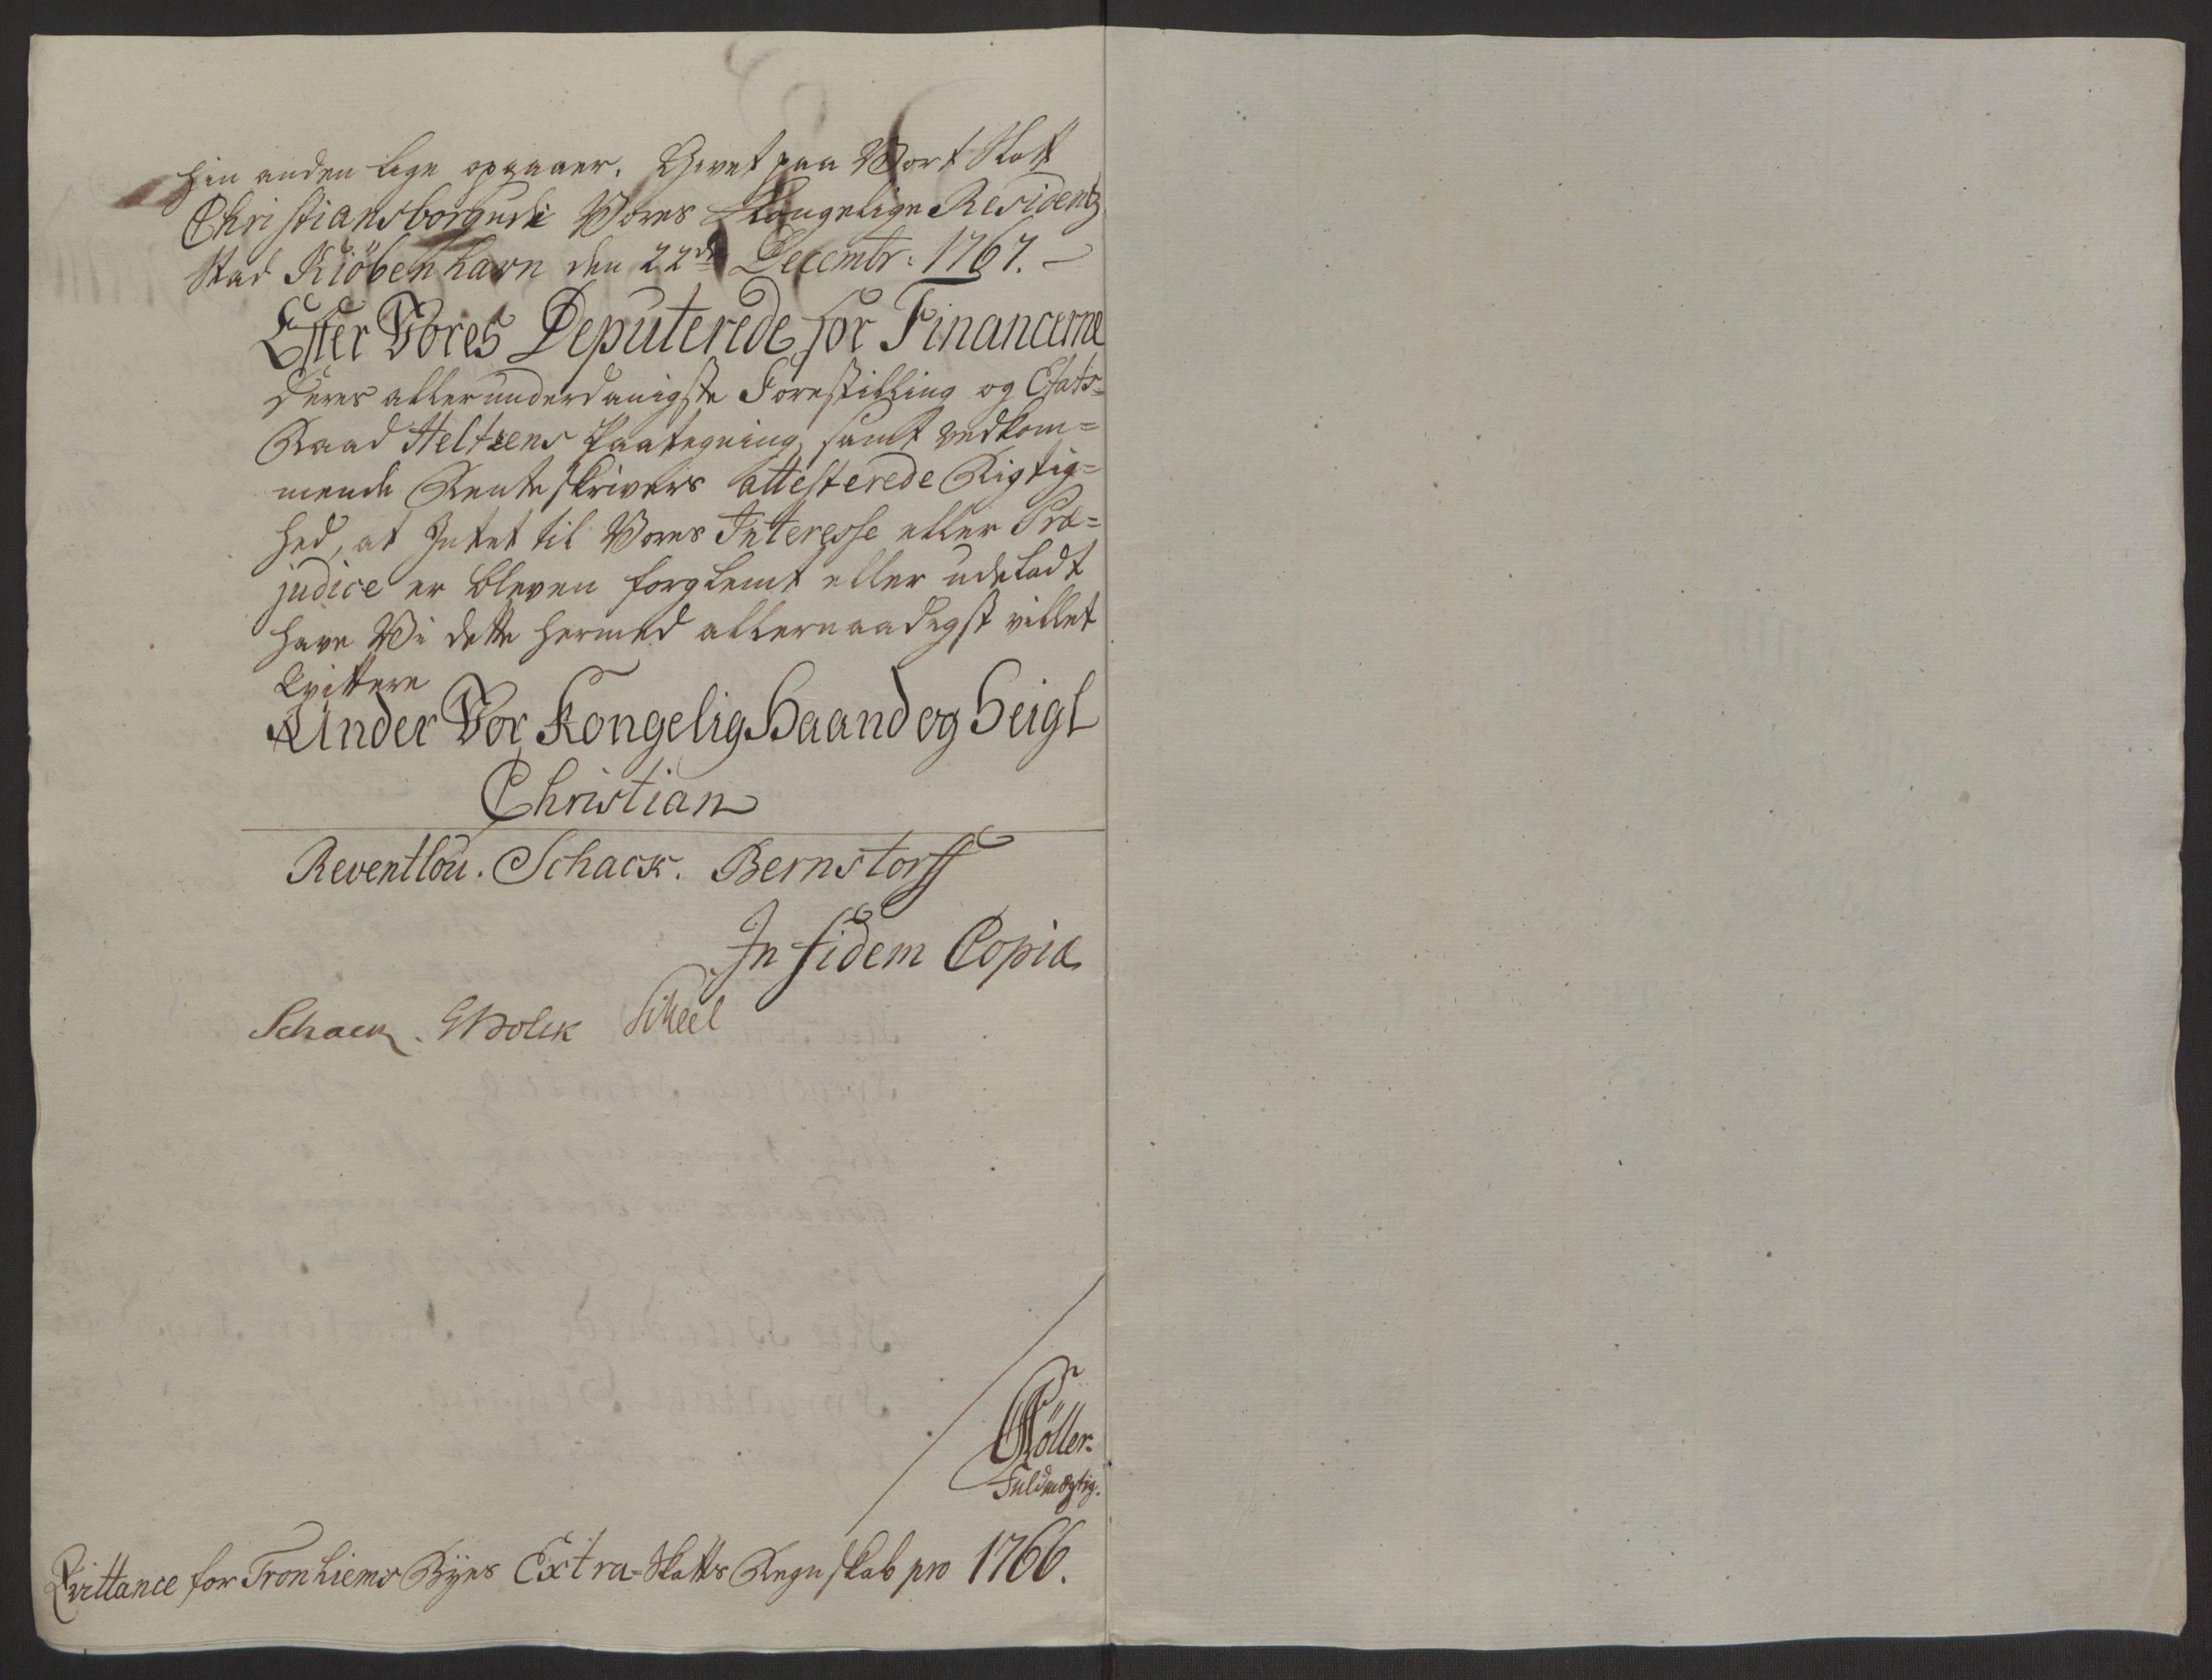 hin anden lige opgaaer. Givet paa Vort Slott
Christiansborg udi Vores Kongelige Residentz
Stad Kiöbenhavn den 22de Decembr: 1767.
Efter Vores Deputerede for Financerne
Deres allerunderdanigste Forestilling og Etats-
Raad Heltzens Paategning, samt vedkom=
mende Renteskrivers attesterede Rigtig=
hed, at Intet til Vores Interesse eller Præ=
judice er bleven forglemt eller udeladt
have Vi dette hermed allernaadigst villet
Qvittere
Under Vor Kongelig Haand og Seigl
Christian
Reventlou. Schack. Bernstorff
In fidem Copiæ
Schack. Holck Scheel
Möller.
Fuldmægtig.
Qvittance for Tronhiems Byes Extra-Skatts Regnskab pro 1766.